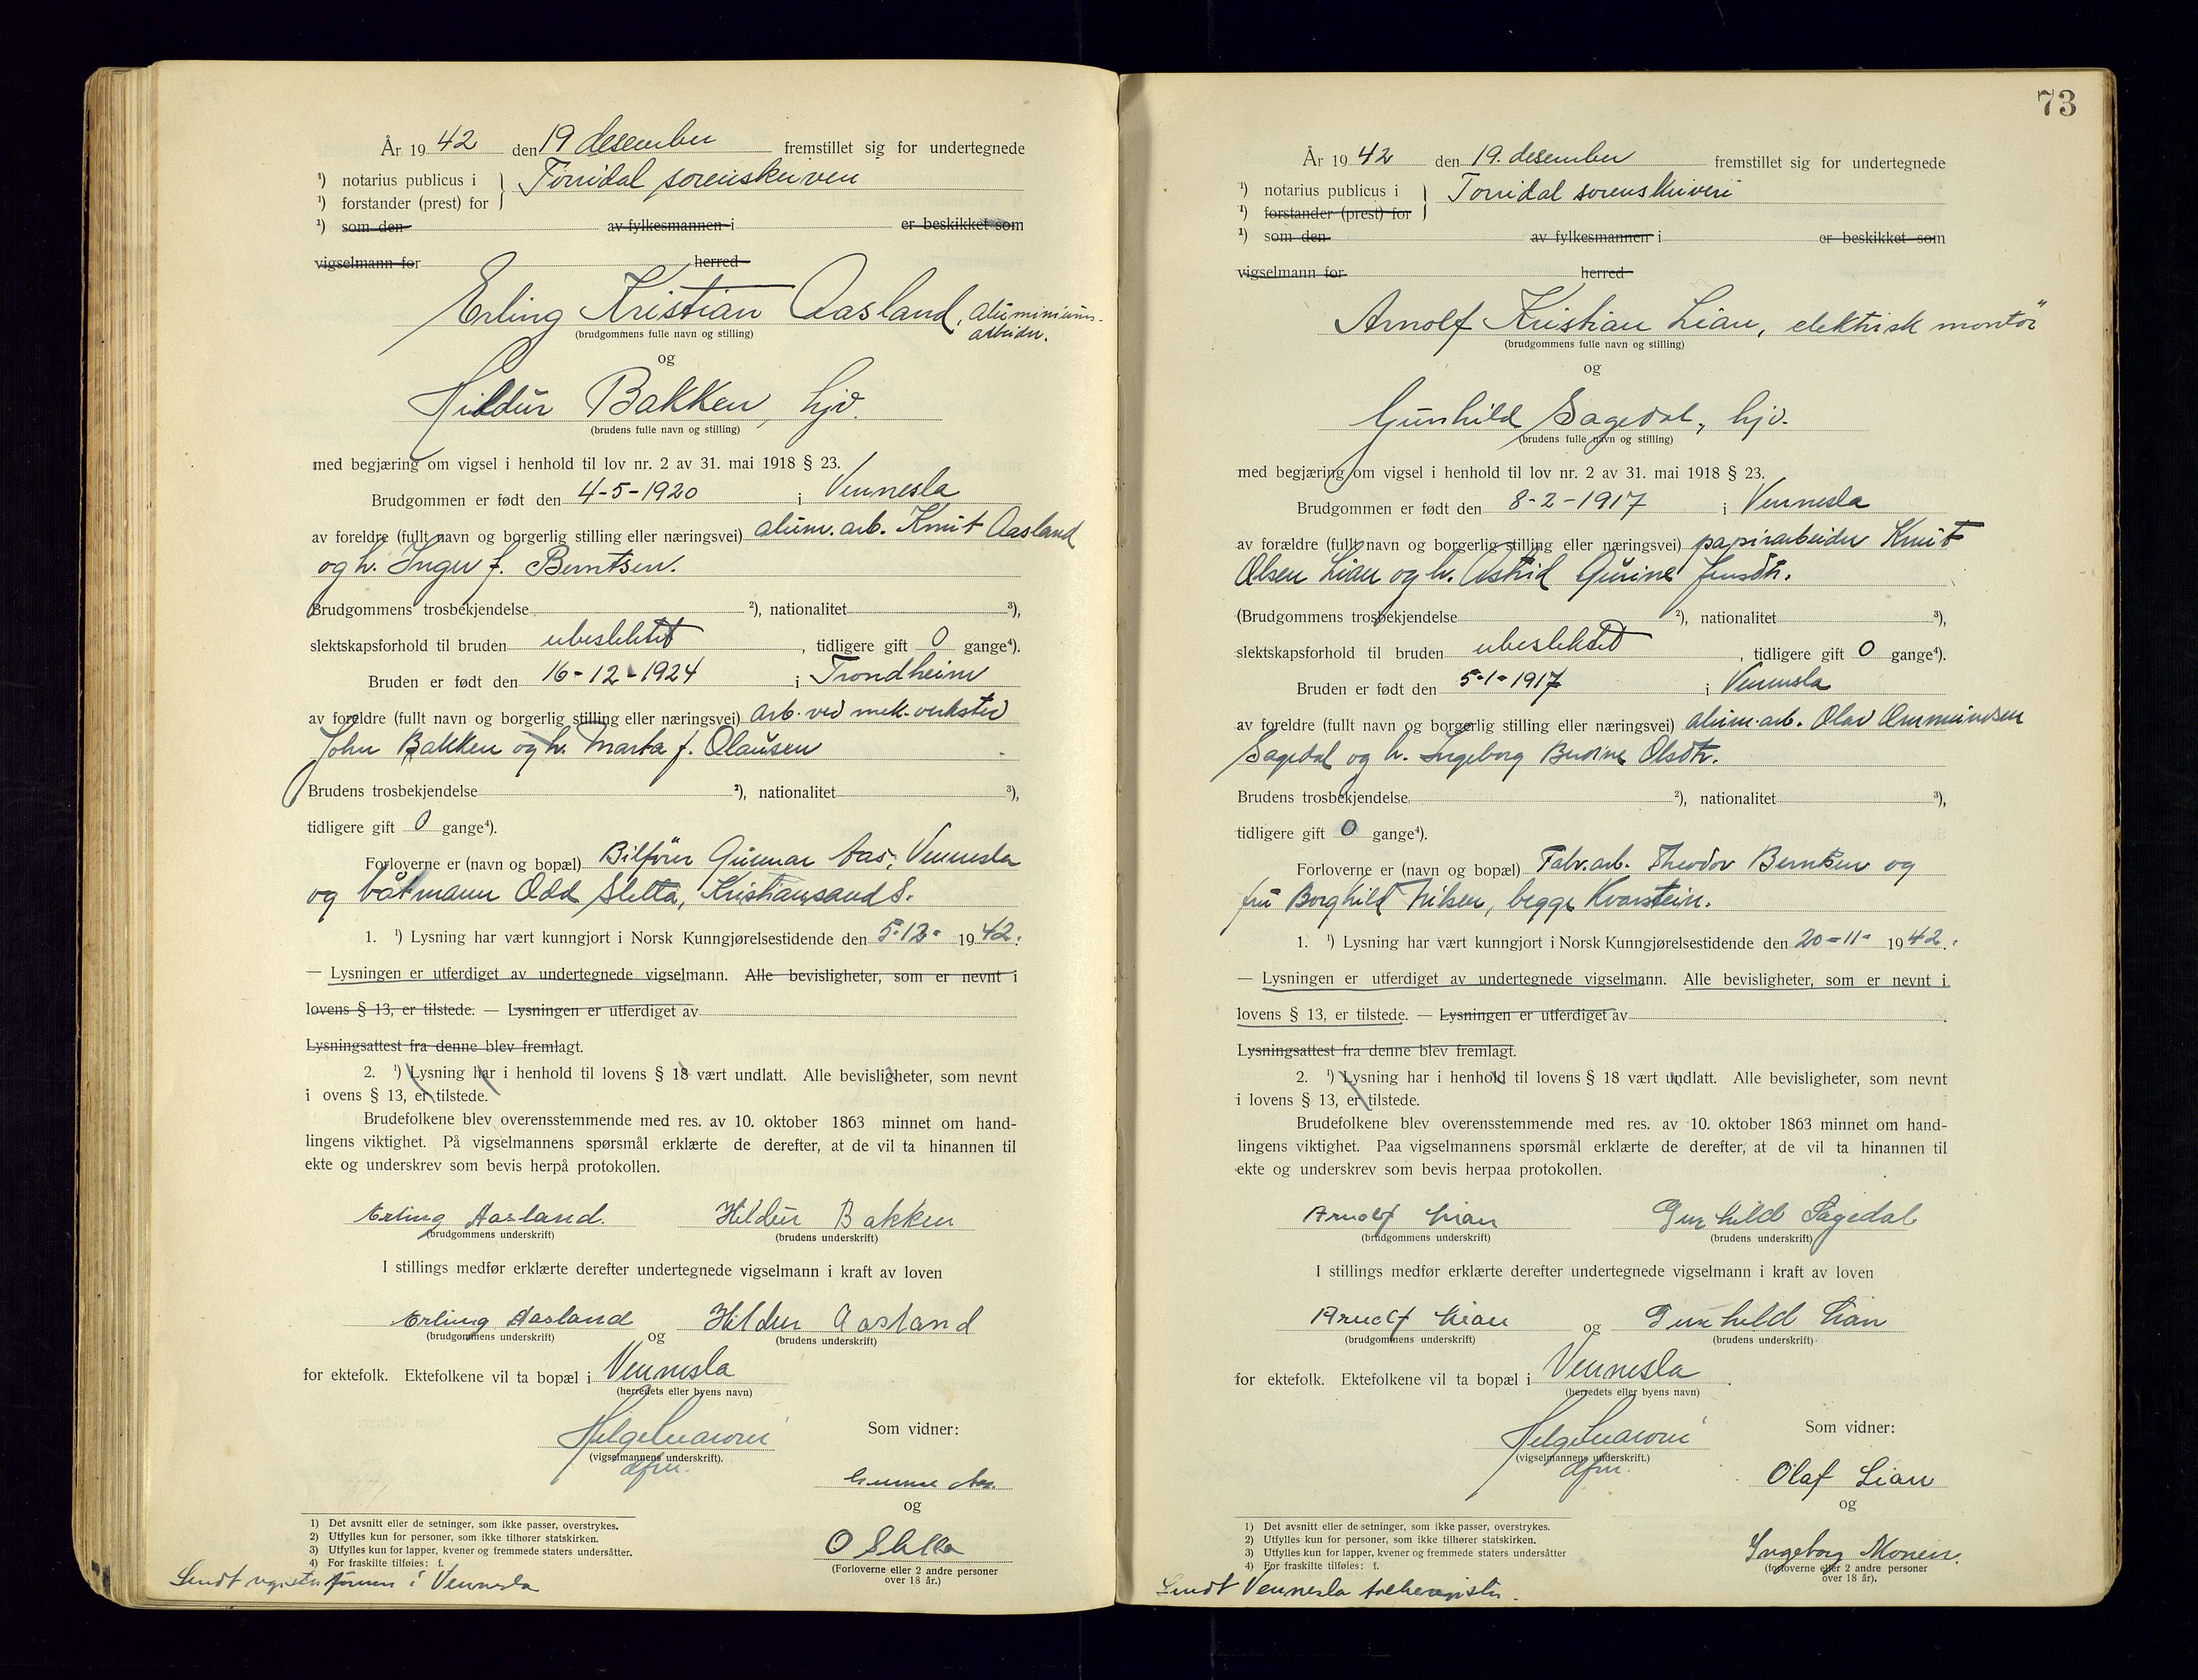 År 1942 den 19 desember fremstillet sig for undertegnede
¹) notarius publicus i } Torridal sorenskriveri
¹) forstander (prest) for
¹) som den av fylkesmannen i er beskikket som
vigselmann for herred
Erling Kristian Aasland, aluminiums-
arbeider.
(brudgommens fulle navn og stilling)
og
Hildur Bakken, hjv.
(brudens fulle navn og stilling)
med begjæring om vigsel i henhold til lov nr. 2 av 31. mai 1918 § 23.
Brudgommen er født den 4-5-1920 i Vennesla
av foreldre (fullt navn og borgerlig stilling eller næringsvei) alum. arb. Knut Aasland
og h. Inger f. Berntsen.
Brudgommens trosbekjendelse ²), nationalitet ³),
slektskapsforhold til bruden ubeslektet, tidligere gift 0 gange⁴).
Bruden er født den 16-12-1924 i Trondheim
av foreldre (fullt navn og borgerlig stilling eller næringsvei) arb. ved mek. verksted
John Bakken og h. Marta f. Olausen
Brudens trosbekjendelse ²), nationalitet ³),
tidligere gift 0 gange⁴).
Forloverne er (navn og bopæl) Bilfører Gunnar Aas, Vennesla
og båtmann Odd Sletta, Kristiansand S.
1. ¹) Lysning har vært kunngjort i Norsk Kunngjørelsestidende den 5.12- 1942.
— Lysningen er utferdiget av undertegnede vigselmann. Alle bevisligheter, som er nevnt i
lovens § 13, er tilstede. — Lysningen er utferdiget av
Lysningsattest fra denne blev fremlagt.
2. ¹) Lysning har i henhold til lovens § 18 vært undlatt. Alle bevisligheter, som nevnt
i ovens § 13, er tilstede.
Brudefolkene blev overensstemmende med res. av 10. oktober 1863 minnet om hand-
lingens viktighet. På vigselmannens spørsmål erklærte de derefter, at de vil ta hinannen til
ekte og underskrev som bevis herpå protokollen.
Erling Aasland. Hildur Bakken
(brudgommens underskrift) (brudens underskrift)
I stillings medfør erklærte derefter undertegnede vigselmann i kraft av loven
Erling Aasland og Hildur Aasland
(brudgommens underskrift) (brudens underskrift)
for ektefolk. Ektefolkene vil ta bopæl i Vennesla
(herredets eller byens navn)
Som vidner:
(vigselmannens underskrift).
dfm.
Gunnar Aas.
og
O Sletta
(Forloverne eller 2 andre personer
over 18 år.)
1) Det avsnitt eller de setninger, som ikke passer, overstrykes.
2) Utfylles kun for personer, som ikke tilhører statskirken.
3) Utfylles kun for lapper, kvener og fremmede staters undersåtter.
4) For fraskilte tilføies: f.
Sendt registerføreren i Vennesla
73
År 1942 den 19. desember fremstillet sig for undertegnede
¹) notarius publicus i } Torridal sorenskriveri
¹) forstander (prest) for
¹) som den av fylkesmannen i er beskikket som
vigselmann for herred
Arnolf Kristian Lian, elektrisk montør
(brudgommens fulle navn og stilling)
og
Gunhild Sagedal, hjv.
(brudens fulle navn og stilling)
med begjæring om vigsel i henhold til lov nr. 2 av 31. mai 1918 § 23.
Brudgommen er født den 8-2-1917 i Vennesla
av forældre (fullt navn og borgerlig stilling eller næringsvei) papirarbeider Knut
Olsen Lian og h. Astrid Gurine Jensdtr.
(Brudgommens trosbekjendelse ²), nationalitet ³),
slektskapsforhold til bruden ubeslektet, tidligere gift 0 gange⁴).
Bruden er født den 5-1-1917 i Vennesla
av foreldre (fullt navn og borgerlig stilling eller næringsvei) alum. arb. Olav Ommundsen
Sagedal og h. Ingeborg Olsdtr.
Brudens trosbekjendelse ²), nationalitet ³),
tidligere gift 0 gange⁴).
Forloverne er (navn og bopæl) Fabr. arb. Theodor Berntsen og
fru Borghild Nilsen, begge Kvarstein.
1. ¹) Lysning har vært kunngjort i Norsk Kunngjørelsestidende den 20-11- 1942.
— Lysningen er utferdiget av undertegnede vigselmann. Alle bevisligheter, som er nevnt i
lovens § 13, er tilstede. — Lysningen er utferdiget av
Lysningsattest fra denne blev fremlagt.
2. ¹) Lysning har i henhold til lovens § 18 vært undlatt. Alle bevisligheter, som nevnt
i lovens § 13, er tilstede.
Brudefolkene blev overensstemmende med res. av 10. oktober 1863 minnet om hand-
lingens viktighet. Paa vigselmannens spørsmål erklærte de derefter, at de vil ta hinannen til
ekte og underskrev som bevis herpaa protokollen.
Arnolf Lian Gunhild Sagedal
(brudgommens underskrift) (brudens underskrift)
I stillings medfør erklærte derefter undertegnede vigselmann i kraft av loven
Arnolf Lian og Gunhild Lian
(brudgommens underskrift) (brudens underskrift)
for ektefolk. Ektefolkene vil ta bopæl i Vennesla
(herredets eller byens navn)
Som vidner:
(vigselmannens underskrift.)
dfm.
Olaf Lian
og
Ingeborg Monen.
(forloverne eller 2 andre personer
over 18 år).
1) Det avsnitt eller de setninger, som ikke passer, overstrykes.
2) Utfylles kun for personer, som ikke tilhører statskirken.
3) Utfylles kun for lapper, kvener og fremmede staters undersåtter
4) For fraskilte tilføies: f.
Sendt Vennesla folkeregister.